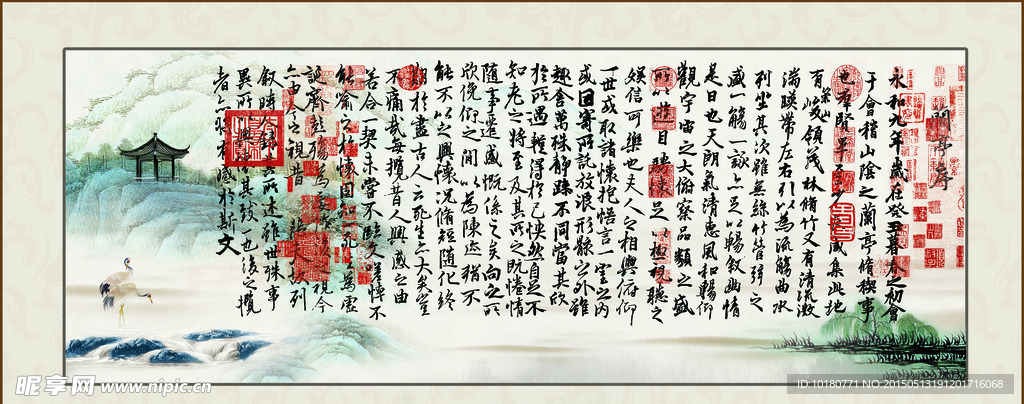 蘭亭序
永和九年歲在癸丑暮春之初會
于會稽山陰之蘭亭脩禊事
也羣賢畢至少長咸集此地
有崇山峻領茂林脩竹又有清流激
湍暎帶左右引以為流觴曲水
列坐其次雖無絲竹管弦之
盛一觴一詠亦足以暢敘幽情
是日也天朗氣清惠風和暢仰
觀宇宙之大俯察品類之盛
所以遊目騁懷足以極視聽之
娛信可樂也夫人之相與俯仰
一世或取諸懷抱悟言一室之內
或因寄所託放浪形骸之外雖
趣舍萬殊靜躁不同當其欣
於所遇蹔得於己怏然自足不
知老之將至及其所之既惓情
隨事遷感慨係之矣向之所
欣俛仰之間以為陳迹猶不
能不以之興懷況脩短隨化終
期於盡古人云死生亦大矣豈
不痛哉每攬昔人興感之由
若合一契未嘗不臨文嗟悼不
能喻之於懷固知一死生為虛
誕齊彭殤為妄作後之視今
亦由今之視昔悲夫故列
敘時人錄其所述雖世殊事
異所以興懷其致一也後之攬
者亦將有感於斯文
昵享网 www.nipic.cn
ID:10180771 NO:20150513191201716068